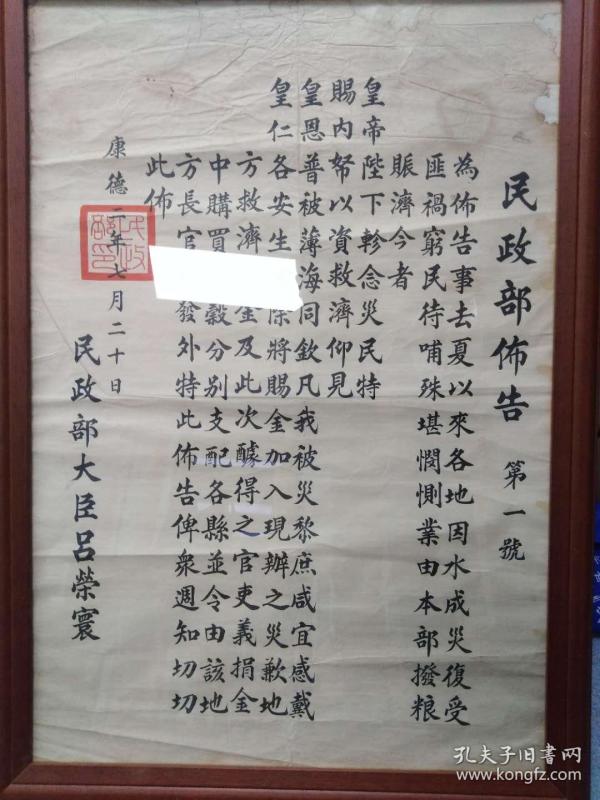 民政部佈告 第一號
為佈告事去夏以來各地因水成災復受
匪禍窮民待哺殊堪憫惻業由本部撥粮
賑濟今者
皇帝陛下軫念災民特
賜內帑以資救濟仰見
皇恩普被薄海同欽凡我被災黎庶咸宜感戴
皇仁各安生 除將賜金加入現辦之災歉地
方救濟 金及此次醵得之官吏義捐金
中購買 穀分別支配各縣並令由該地
方長官 發外特此佈告俾眾週知切切
此佈
康德二年七月二十日
民政部大臣呂榮寰
孔夫子旧書网
www.kongfz.com